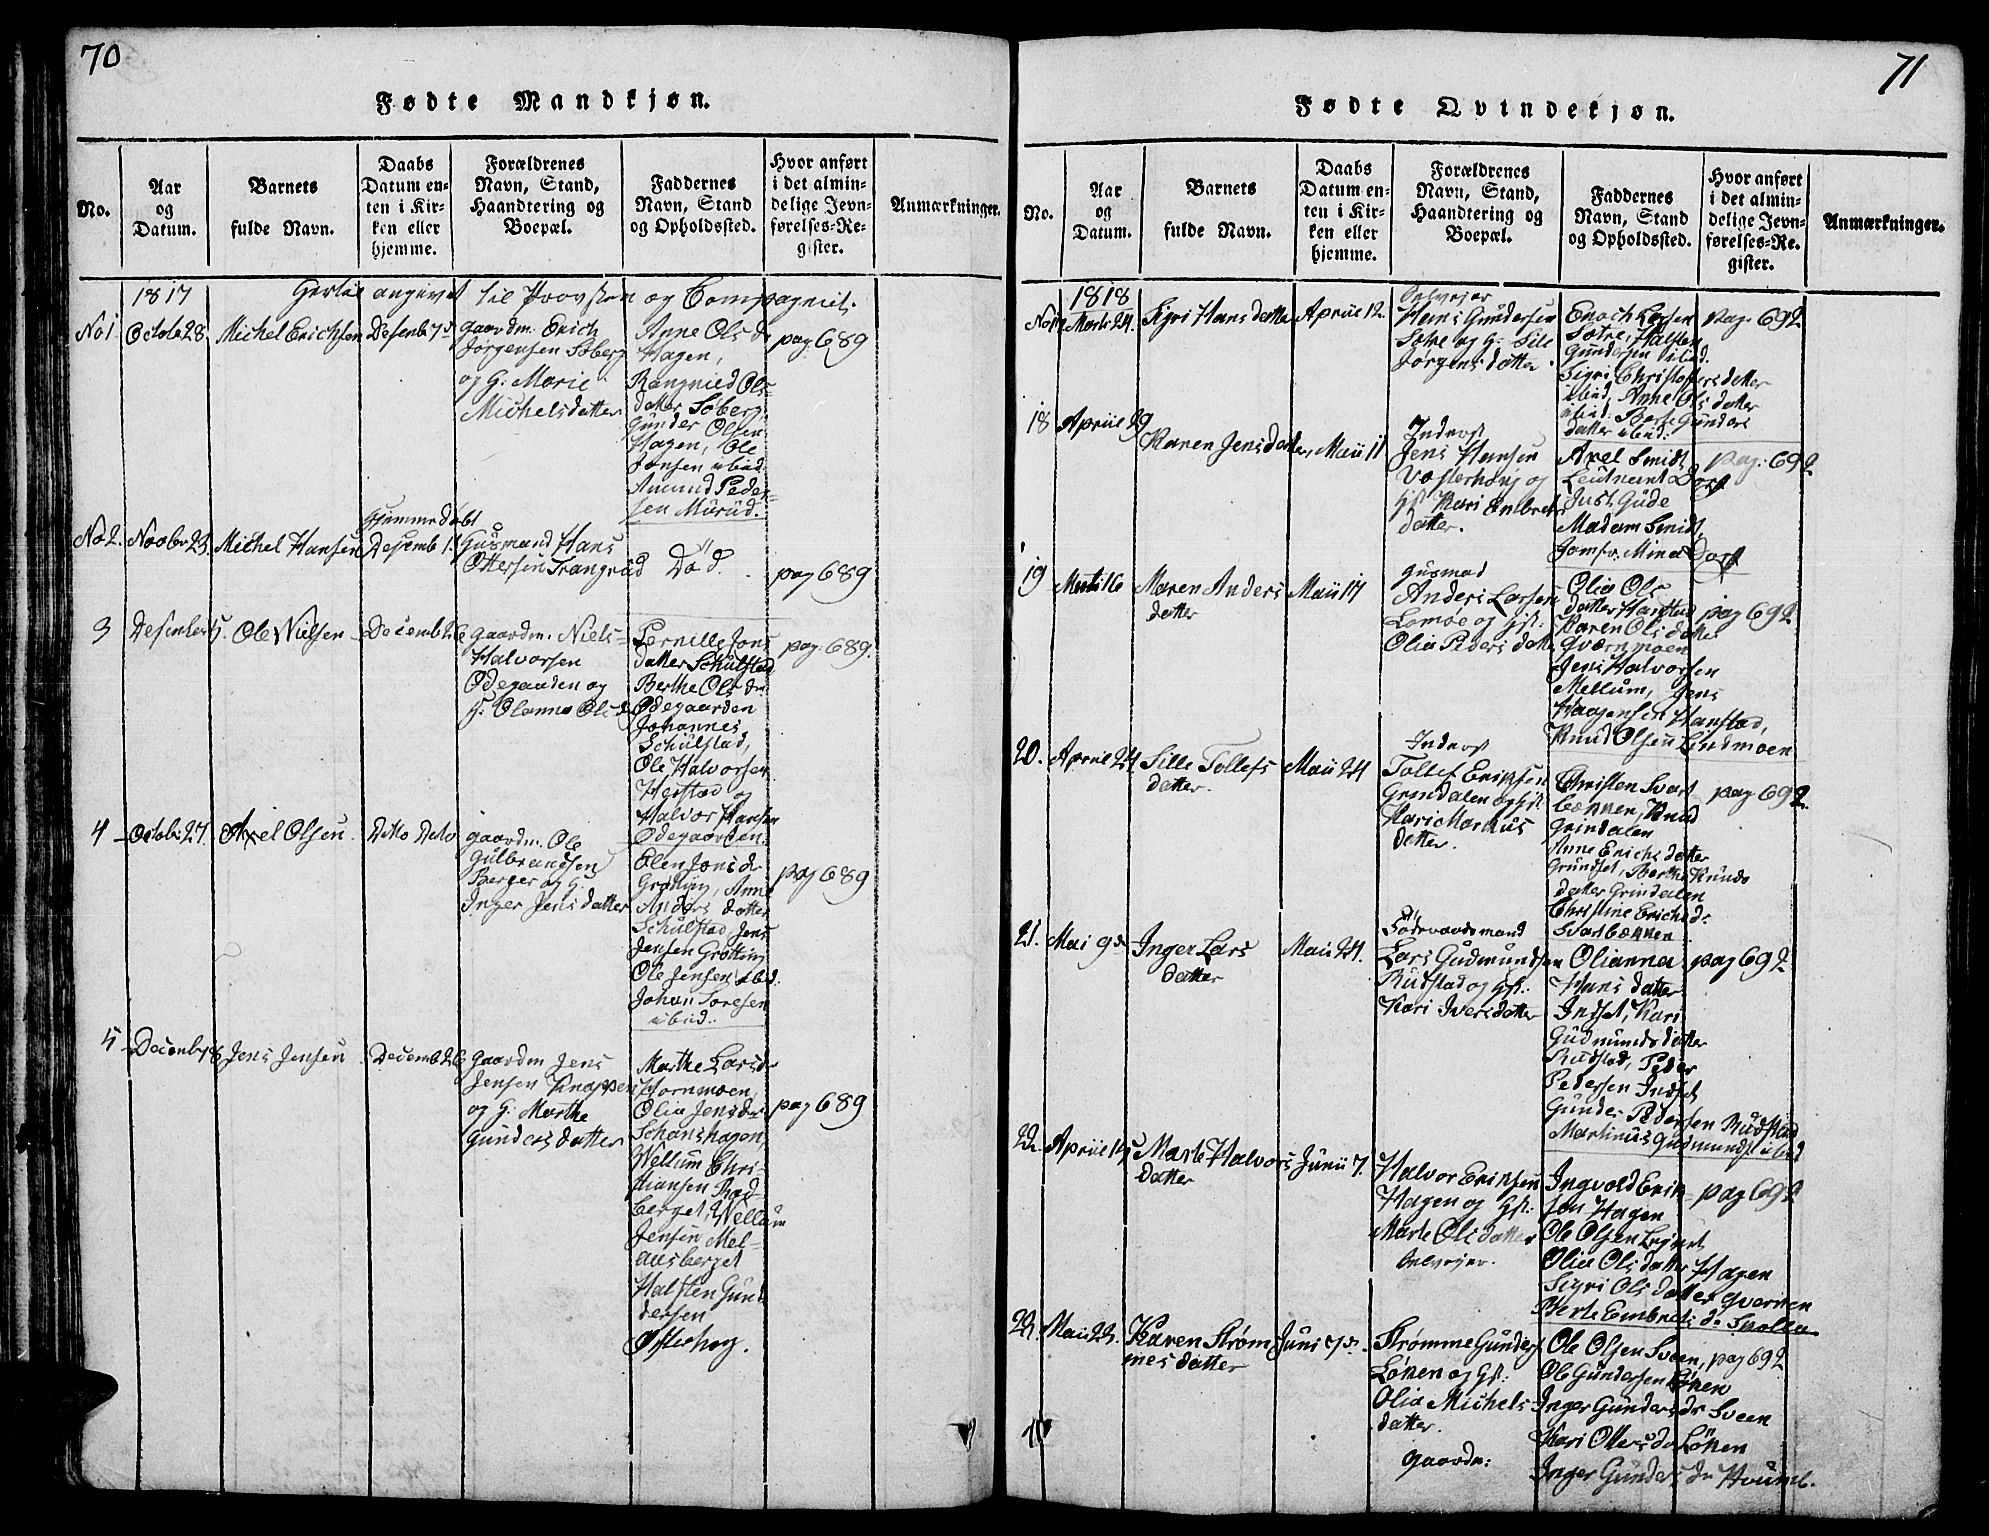 70
Fødte Mandkjøn.
No.
Aar
og
Datum.
Barnets
fulde Navn.
Daabs
Datum en-
ten i Kir-
ken eller
hjemme.
Forældrenes
Navn, Stand,
Haandtering og
Boepæl.
Faddernes
Navn, Stand
og Opholdssted.
Hvor anført
i det almin-
delige Jevn-
førelses-Re-
gister.
Anmærkninger.
1817
angivet til Provsten og Compagniet.
No 1
Octob 28.
Michel Erichsen
Desemb 7d
gaardm. Erich
Jørgensen Söberg
og G: Marie
Michelsdatter
Anne Ols dr
Hagen,
Rangnied Ols-
datter Söberg,
Gunder Olsen
Hagen, Ole
Jonsen ibid
Amund Peder-
sen Mürüd.
pag 689
No 2.
Novbr 23.
Michel Hansen
Hjemme døbt
Desemb 1
Husmand Hans
Ottersen Trangrud
Død.
pag 689
3
Desember 5.
Ole Nielsen
Decemb 26
gaardm. Niels
Halvorsen
Ödegaarden og
G: Oleanna Olsd
Pernille Jons
datter Schulstad
Berthe Ols dr
Ödegaarden
Johannes
Schulstad,
Ole Halvorsen
Herstad og
Halvor Hansen
Ödegaarden.
pag: 689.
4
Octob 27.
Axel Olsen.
Ditto Dato
gaardm. Ole
Gulbrandsen
Berger og G:
Inger Jensdatter
Elen Jonsdr
Grötting, Anne
Anders datter
Schulstad, Jens
Jensen Grötting
Ole Jensen ibid.
Johan Toresen
ibid.
pag 689
5
Decemb 18
Jens Jensen
Decemb 26
gaardm Jens
Jensen Knappen
og G: Marthe
Gundersdatter
Marthe Larsdr
Hornmoen,
Olia Jensdr
Schanshagen,
Wellum Chri-
stiansen Rød-
berget, Wellum
Jensen Mel-
ansberget
Halsten Gun-
dersen
Østerhaug.
pag 689
71
Fødte Qvindekjøn.
No.
Aar
og
Datum.
Barnets
fulde Navn.
Daabs
Datum en-
ten i Kir-
ken eller
hjemme.
Forældrenes
Navn, Stand,
Haandtering og
Boepæl.
Faddernes
Navn, Stand
og Opholdssted.
Hvor anført
i det almin-
delige Jevn-
førelses-Re-
gister.
Anmærkninger.
1818
No 17
Marti 24.
Siri Hans datter
Apriil 12.
Selvejer
Hans Gundersen
Sætre og G: Sile
Jörgensdatter
Enoch Larsen
Sætre, Halsten
Gundersen ibid.
Sigri Christophersdatter
ibid, Anne Ols datter
ibid: Berte Gunders
datter ibid.
pag: 692
18
Apriil 29
Karen Jensdatter,
Maii 11
Inderst
Jens Hansen
Vesterhaug og
Hst Kari Embrets
datter.
Axel Smidt
Leutnant Dorf
Just Gude
Madam Smidt,
Jomfr. Mina Dorf
pag: 692
19
Marti 16
Maren Anders
datter
Maii 17
Husmad
Anders Larsen
Lomoe og Hst:
Olia Peders datter
Olia Ols
datter Hanstad
Karen Ols datter
Qværnmoen
Jens Halvorsen
Mellum, Jens
Haagensen Hanstad,
Knud Olsen Lindmoen
pag 692
20.
Apriil 24.
Sille Tollefs
datter.
Maii 24
Inderst
Tollef Eriksen
Grindalen og Hst
Kari Markus
datter.
Christen Svart
bækken, Knud
Grindalen
Anne Erichs datter
Grundset, Berthe Knuds
datter Grindalen
Christine Erichsdr
Svartbækken
pag 692.
21.
Mai 9d
Inger Lars
datter
Maii 24.
Lars Gudmundsen
Rudstad og Hst:
Kari Iversdatter
Olianna
Hans datter
Indset, Kari
Gudmunds datter
Rudstad, Peder
Pedersen Indset
Gunder Pedersen Rudstad
Martinus Gudmunds: ibid
pag 692
22.
Apriil 14
Marte Halvors
datter
Junii 7.
Halvor Eriksen
Hagen og Hst:
Marte Olsdatter
Selvejer.
Ingvold Erik
sen Hagen
Ole Olsen
Olia Olsdatter Hagen
Sigri Ols datter Qvernen
Berte Embrets dr Svolla
pag 692
23.
Maii 23.
Karen Strøm
mesdatter
Juni 7d.
Strømme Gunders
Löken og Hst:
Olia Michels
datter.
Gaardm:
Ole Olsen Sveen,
Ole Gundersen Löken
Inger Gunders dr Sveen
Kari Olersdr Löken
Inger Gunders dr
pag 692